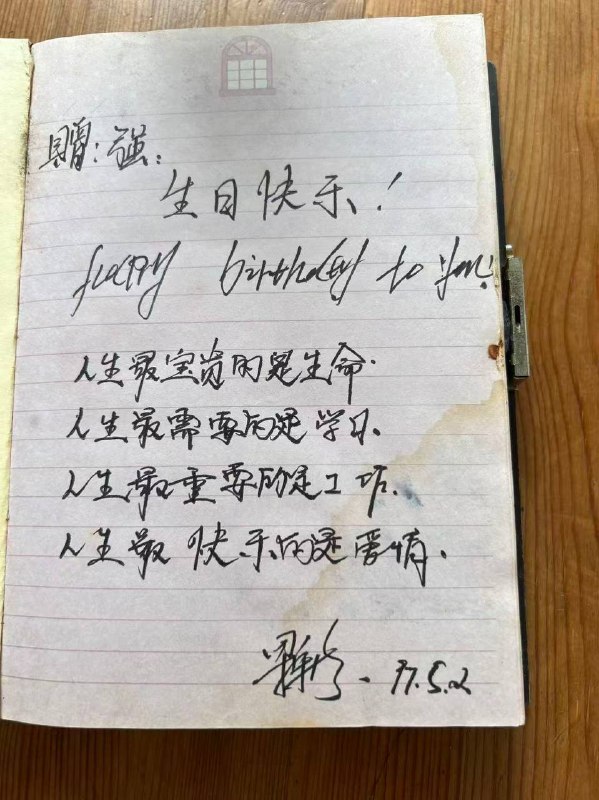 赠：强：
生日快乐！
Happy birthday to you!
人生最宝贵的是生命.
人生最需要的是学习.
人生最重要的是工作.
人生最快乐的是爱情.
97.5.2